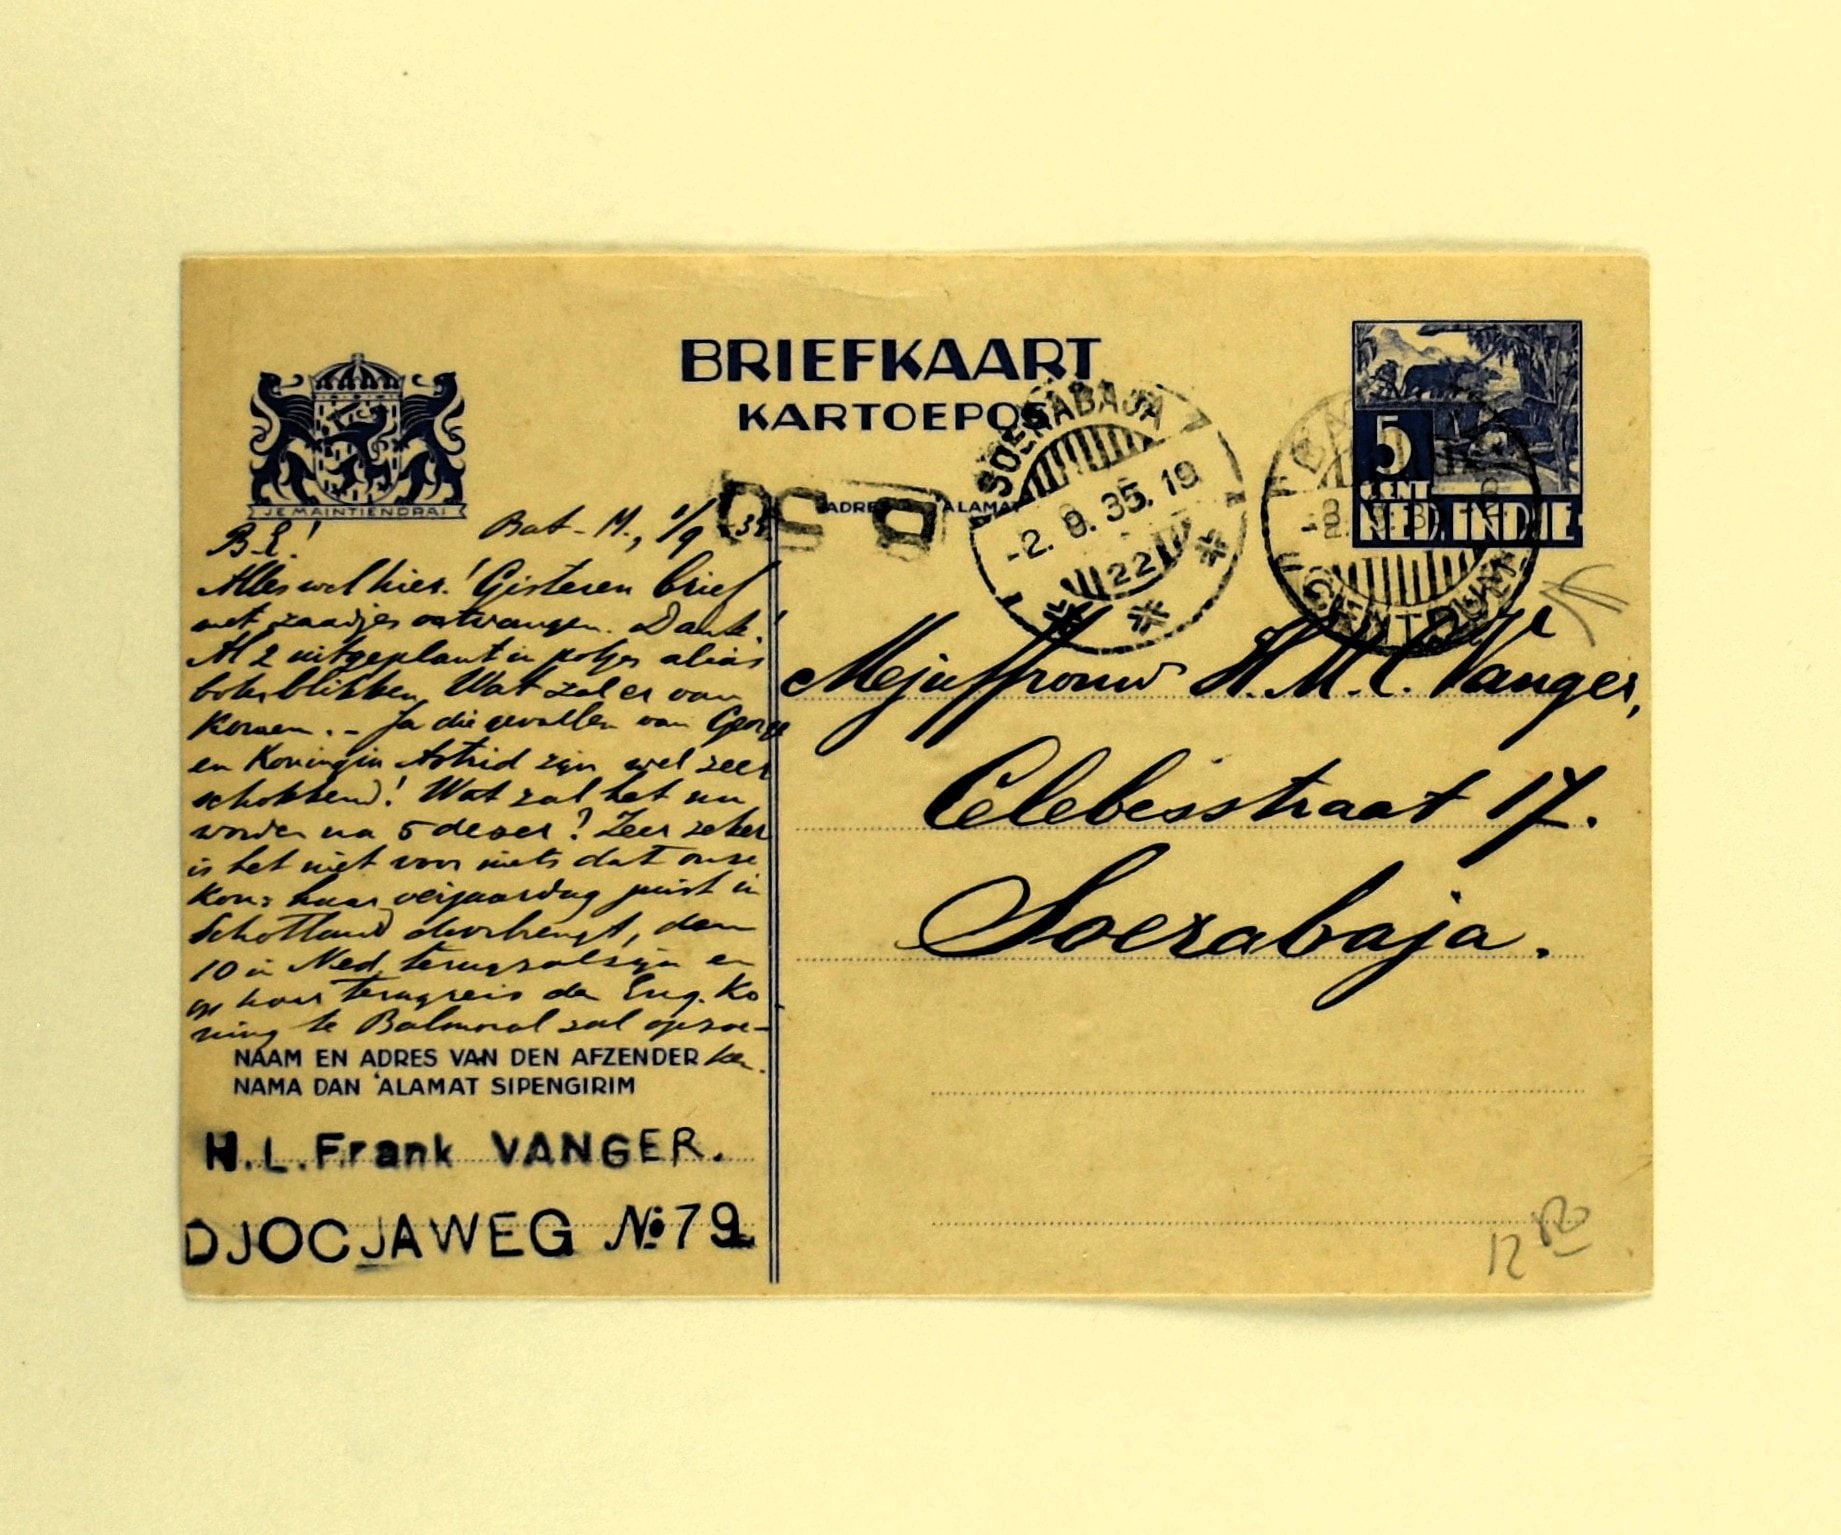 BRIEFKAART
KARTOEPOS
JE MAINTIENDRAI
5
CENT
NED. INDIE
SOERABAJA
-2.9.35.19
22
CENTRUM
ADRES
ALAMAT
B.L.! Bat-M., 1/9 35
Alles wel hier! Gisteren brief
met zaadjes ontvangen. Dank!
Al 2 uitgeplant in potjes alias
boterblikken. Wat zal er van
komen. - Ja die gevallen van George
en Koningin Astrid zijn wel zeer
schokkend! Wat zal het nu
worden na 5 dezer? Zeer zeker
is het niet voor niets dat onze
Kon: haar verjaardag juist in
Schotland doorbrengt, den
10 in Ned. terug zal zijn en
op haar terugreis de Eng. Ko
ning te Balmoral zal opzoe-
ken.
NAAM EN ADRES VAN DEN AFZENDER
NAMA DAN 'ALAMAT SIPENGIRIM
H.L.Frank VANGER.
DJOCJAWEG No 79
Mejuffrouw H.M.C. Vanger,
Celebesstraat 17.
Soerabaja.
12